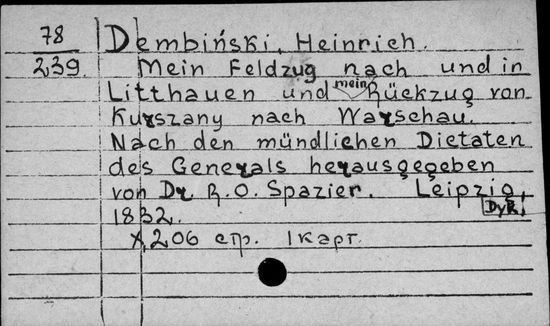 78
239.
Dembiński, Heinrich.
Mein Feldzug nach und in
Litthauen und mein Rückzug von
Kurszany nach Warschau.
Nach den mündlichen Dictaten
des Generals herausgegeben
von Dr R. O. Spazier. Leipzig,
Dyk,
1832.
X, 206 стр. 1 карт.